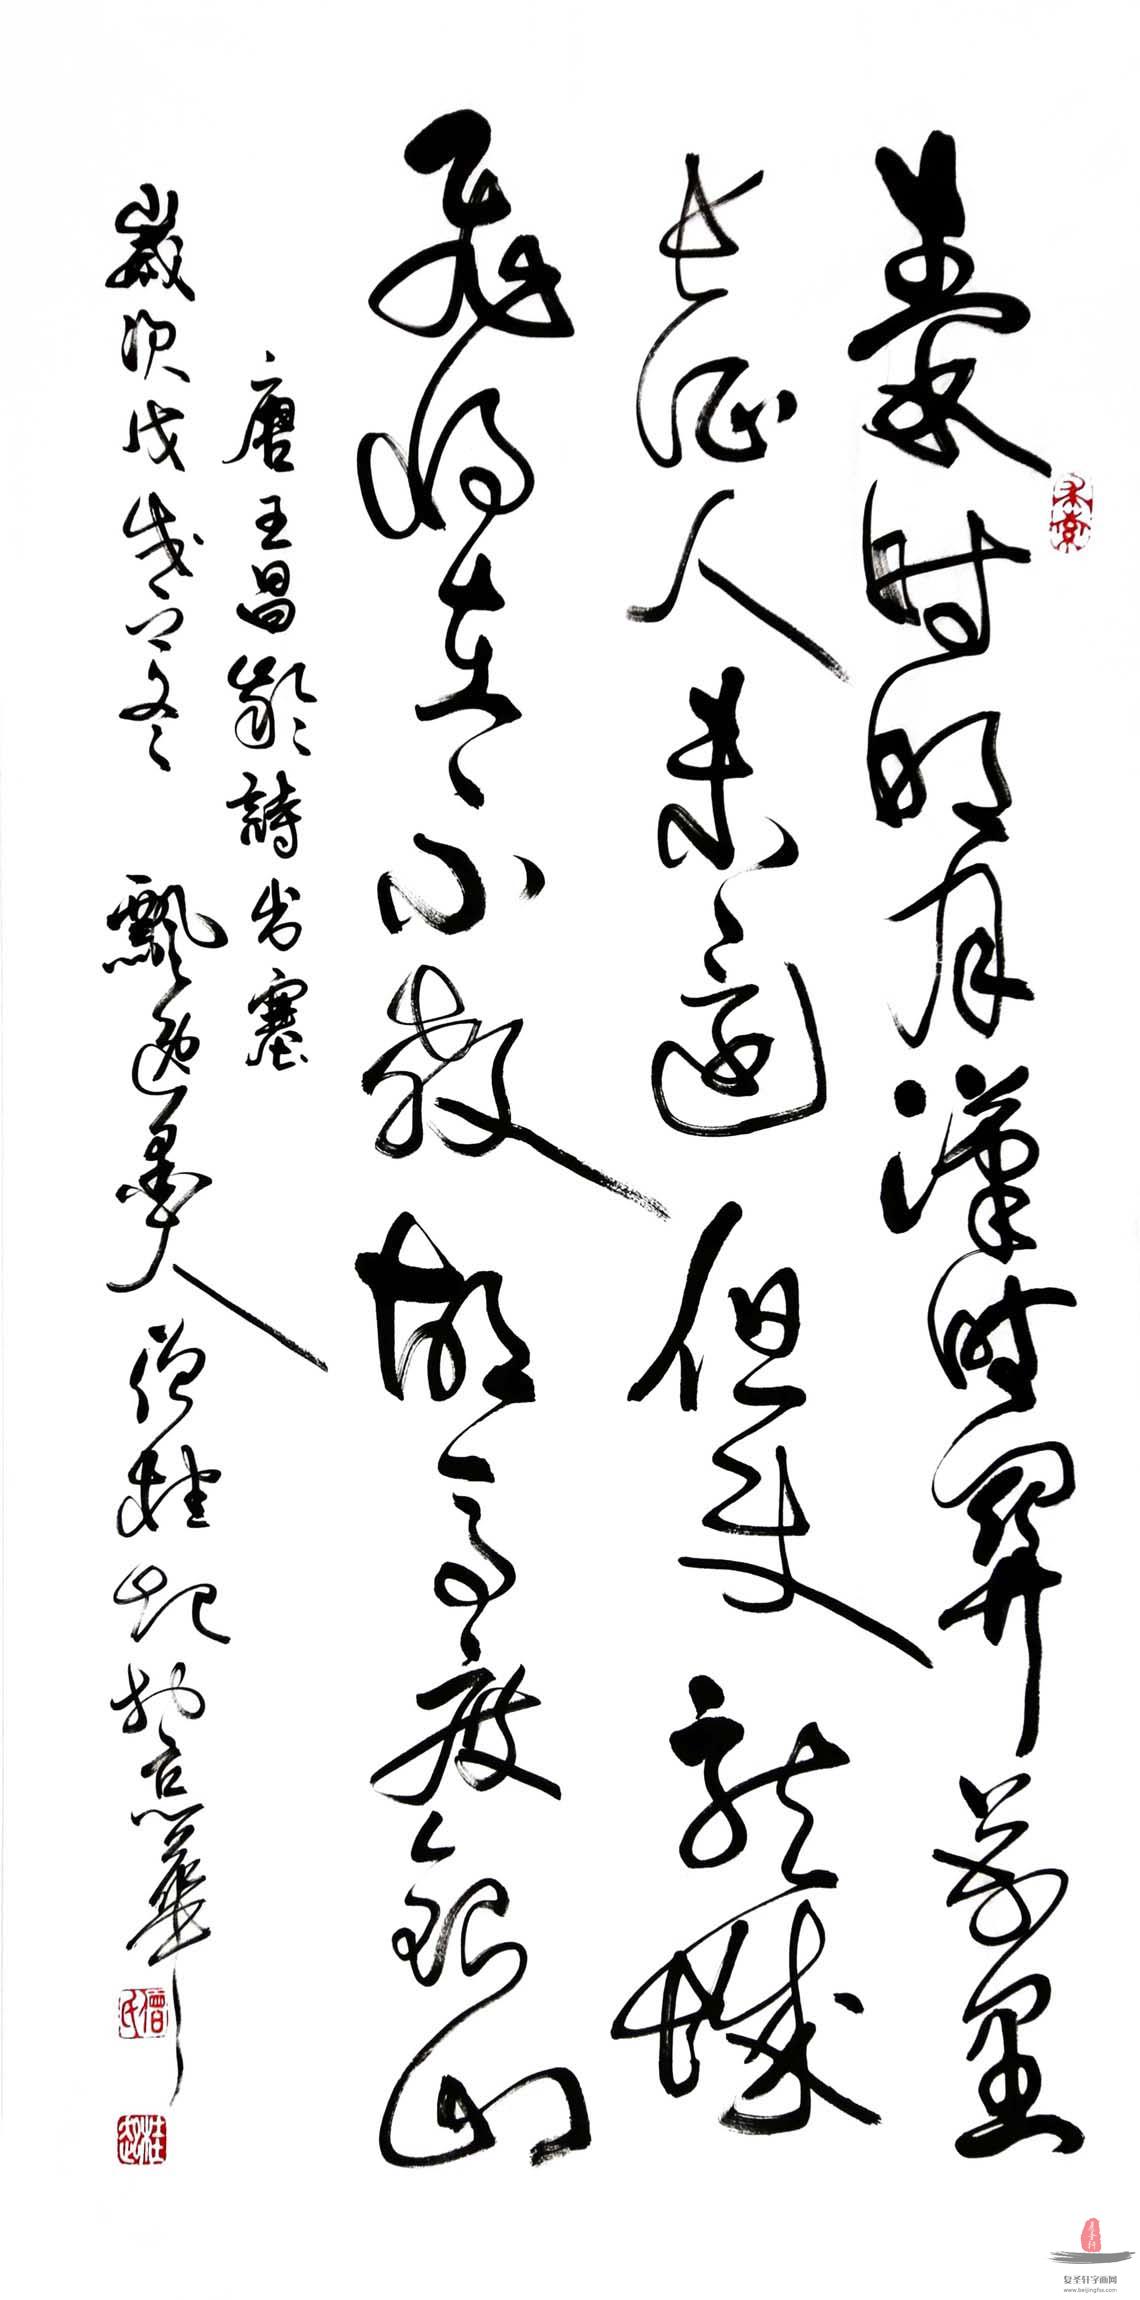 秦時明月漢時關萬里
長征人未還但使龍城
飛將在不教胡馬度陰山
唐王昌齡詩出塞
歲次戊戌之冬 飄逸墨人曾桂起於京華
曾氏
桂起
复圣轩字画网
www.beijingfsx.com